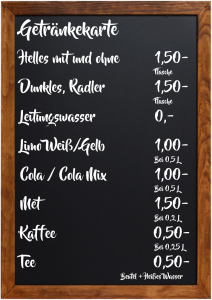 Getränkekarte
Helles mit und ohne 1,50-
Flasche
Dunkles, Radler 1,50-
Flasche
Leitungswasser 0,-
Limo Weiß/Gelb 1,00-
Bei 0,5 L
Cola / Cola Mix 1,00-
Bei 0,5 L
Met 1,50-
Bei 0,2 L
Kaffee 0,50-
Bei 0,25 L
Tee 0,50-
Beutel + Heißes Wasser